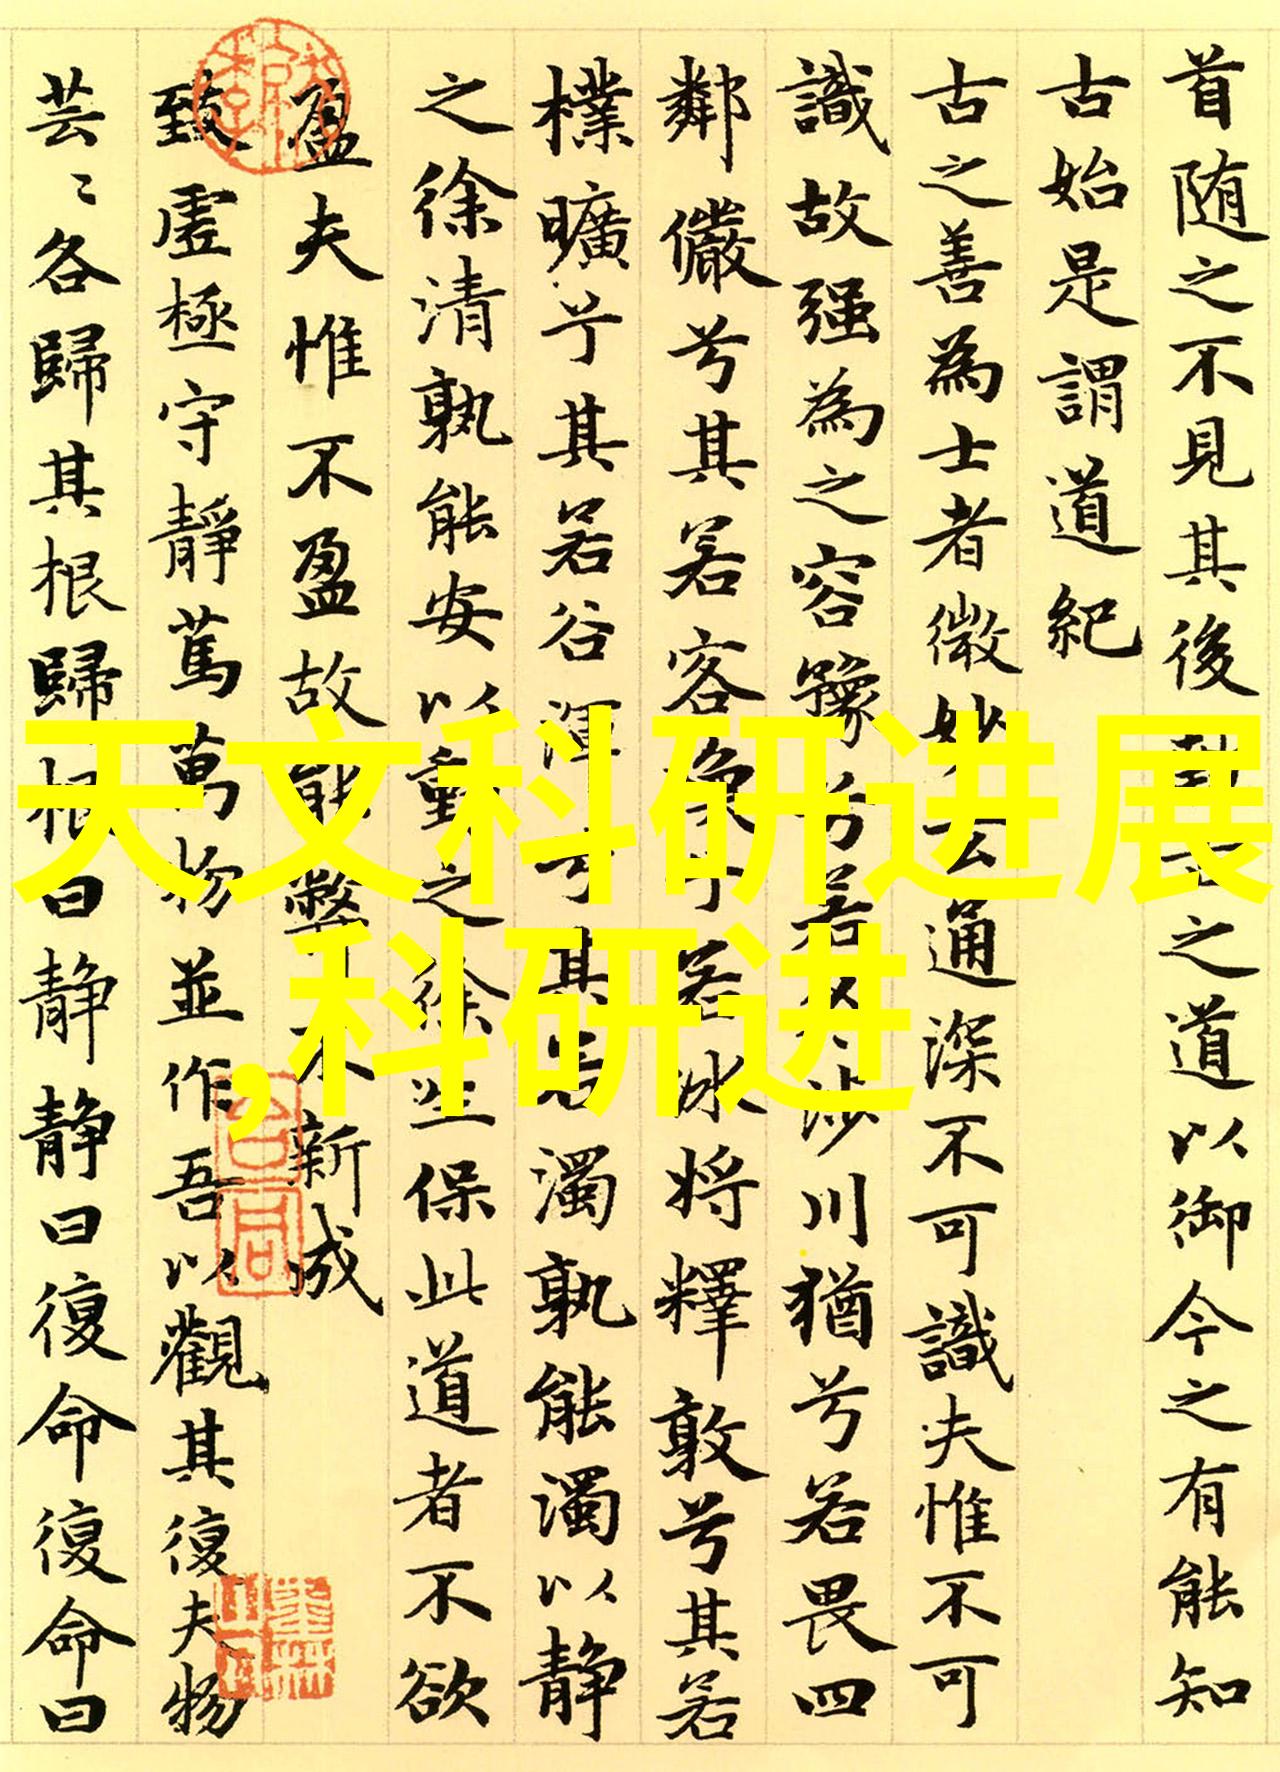 首随之不见其後執古之道以御今之有能知
古始是謂道紀
古之善為士者微妙玄通深不可識夫惟不可
識故强為之容豫兮若冬涉川猶兮若畏四
鄰儼兮其若客渙兮若冰將釋敦兮其若
樸曠兮其若谷渾兮其若濁孰能濁以静
之徐清孰能安以動之徐生保此道者不欲
盈夫惟不盈故能弊不新成
致虚極守靜篤萬物並作吾以觀其復夫物
芸〻各歸其根歸根曰静静曰復命復命曰
天文科研进展
,科研进